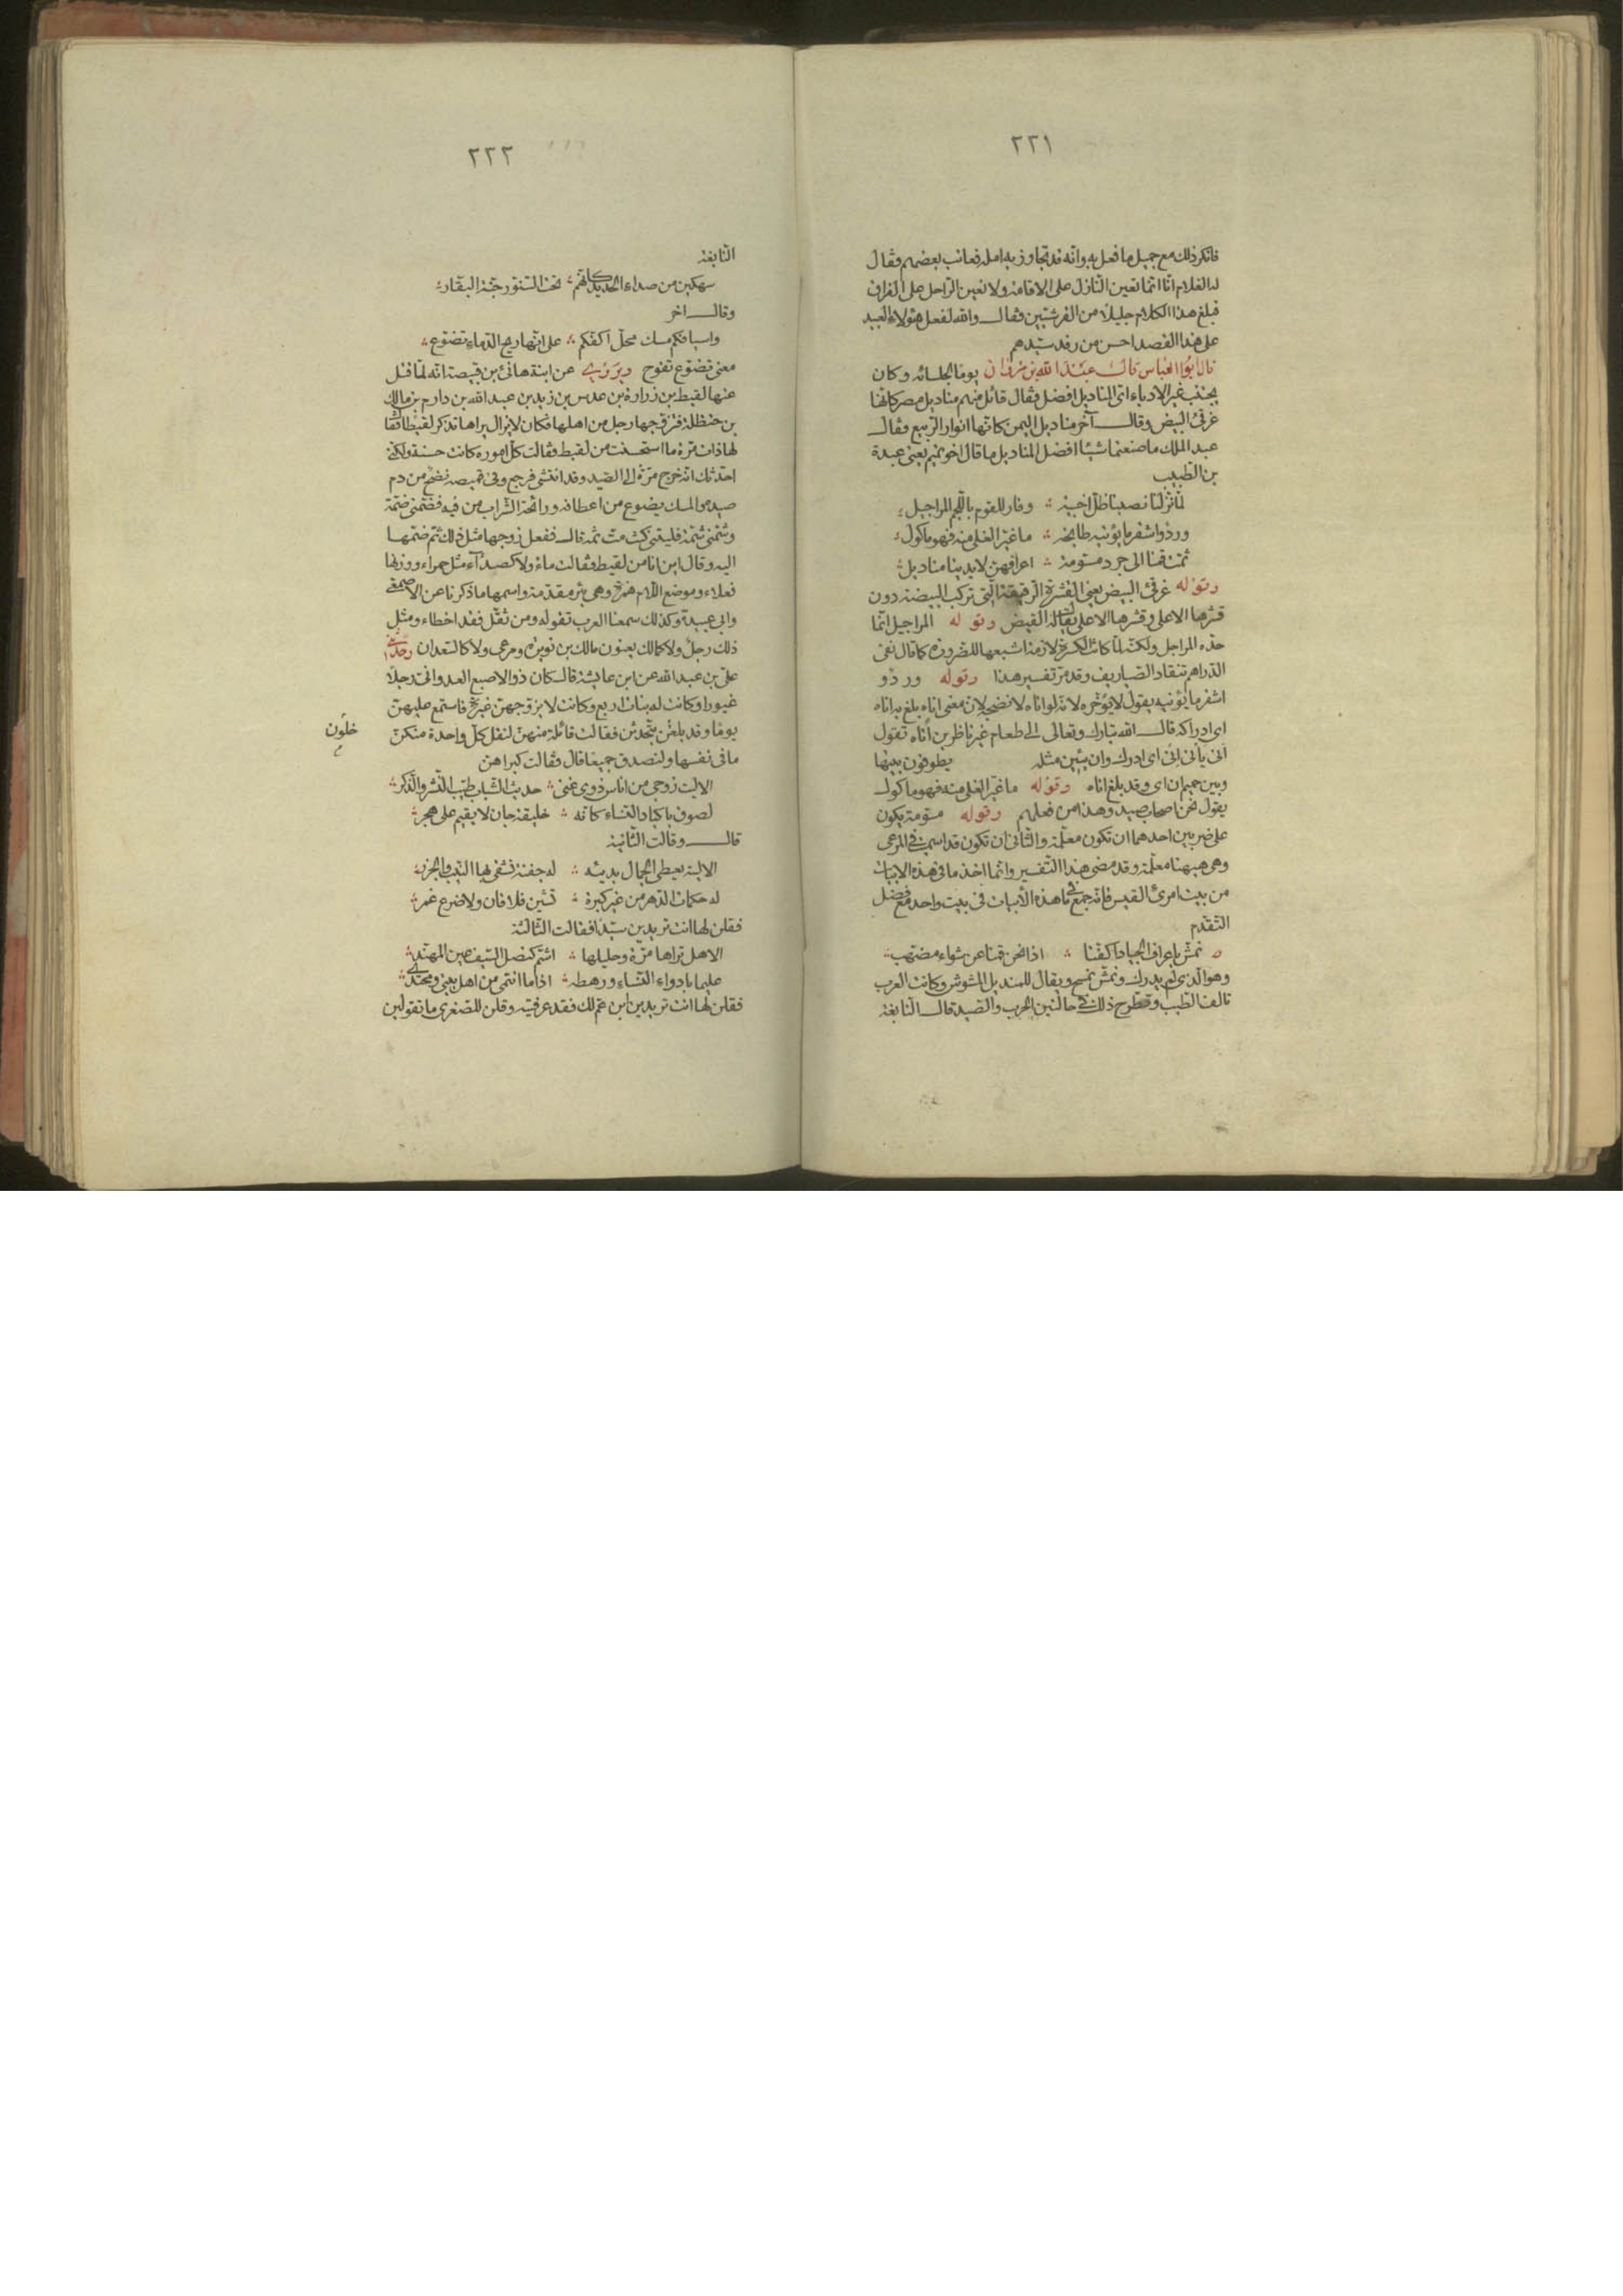 ٢٢١
فانكر ذلك مع جميل ما فعل به وانه قد تجاوز به امله فعاتب بعضهم فقال
له الغلام انا انما نعين النازل على الاقامة ولا نعين الراحل على الفراق
فبلغ هذا الكلام جليلا من القرشيين فقال والله لفعل هؤلاء العبيد
على هذا القصد احسن من رفد سيدهم
قال ابو العباس قال عبد الله بن مروان يوما لجلسائه وكان
يجتنب غير الادباء اى المناديل افضل فقال قائل منهم مناديل مصر كانها
غرقئ البيض وقال آخر مناديل اليمن كانها انوار الربيع فقال
عبد الملك ما صنعتما شيئا افضل المناديل ما قال اخو تميم يعنى عبدة
بن الطبيب
لما نزلنا نصبنا ظل اخبية ؞ وفار للقوم باللحم المراجيل
ورد واشقر ما يؤنيه طابخه ؞ ما غير الغلى منه فهو ماكول
ثمت قمنا الى جرد مسومة ؞ اعرافهن لايدينا مناديل
وقوله غرقئ البيض يعنى القشرة الرقيقة التى تركب البيضة دون
قشرها الاعلى وقشرها الاعلى يقال له القيض وقوله المراجيل انما
حده المراجل ولكنه لما كانت الكسرة لازمة اشبعها للضرورة كما قال نفى
الدراهم تنقاد الصياريف وقد مر تفسير هذا وقوله ورد و
اشقر ما يؤنيه يقول لا يؤخره لانه لو اناه لانضجه لان معنى اناه بلغ به اناه
اى ادراكه قال الله تبارك وتعالى الى طعام غير ناظرين اناه تقول
أنى يأنى إنى اى ادرك وان يئين مثله يطوفون بينها
وبين حميم ان اى وقد بلغ اناه وقوله ما غير الغلى منه فهو ماكول
يقول نحن اصحاب صيد وهذا من فعلهم وقوله مسومة يكون
على ضربين احدهما ان تكون معلمة والثانى ان تكون قد اسيمت فى المرعى
وهى هيهنا معلمة وقد مضى هذا التفسير وانما اخذ ما فى هذه الابيات
من بيت امرئ القيس فانه جمع ما فى هذه الأبيات فى بيت واحد مع فضل
التقدم
نمش باعراف الجياد اكفنا ؞ اذا نحن قمنا عن شواء مضهب
وهو الذى لم يدرك ونمش نمسح ويقال للمنديل المشوش وكانت العرب
تالف الطيب وتطرح ذلك فى حالتين الحرب والصيد قال النابغة
٢٢٢
النابغة
سهكين من صداء الحديد كانهم ؞ تحت السنور جنة البقار
وقال اخر
واسيافكم مسك محل اكفكم ؞ على انها ريح الدماء تضوع
معنى تضوع تفوح ويروى عن ابنة هانئ بن قبيصة انه لما قتل
عنها لقيط بن زرارة بن عدس بن زيد بن عبد الله بن دارم بن مالك
بن حنظلة فتزوجها رجل من اهلها فكان لا يزال يراها تذكر لقيطا فقال
لها ذات مرة ما استحسنت من لقيط فقالت كل اموره كانت حسنة ولكنى
احدثك انه خرج مرة الى الصيد وقد انتشى فرجع وفى قميصه نضح من دم
صيده والمسك يضوع من اعطافه ورائحة الشراب من فيه فضمنى ضمة
وشمنى شمة فليتنى كنت مت ثمه قال ففعل زوجها مثل ذلك ثم ضمها
اليه وقال اين انا من لقيط فقالت ماء ولا كصدآء مثل حمراء ووزنها
فعلاء وموضع اللام همزة وهى بئر مقدمة واسمها ما ذكرنا عن الاصمعى
وابى عبيدة وكذلك سمعنا العرب تقوله ومن ثقل فقد اخطاء ومثل
ذلك رجل ولا كمالك يعنون مالك بن نويرة ومرعى ولا كالسعدان وحدثنى
على بن عبد الله عن ابن عايشة قال كان ذو الاصبع العدوانى رجلا
غيورا وكانت له بنات اربع وكانت لا يزوجهن غيرة فاستمع عليهن
يوما وقد خلون يتحدثن فقالت قائلة منهن لتقل كل واحدة منكن
خلون
ما فى نفسها ولنصدق جميعا قال فقالت كبراهن
الا ليت زوجى من اناس ذوى غنى ؞ حديث الشباب طيب النشر والذكر
لصوق باكباد النساء كانه ؞ خليفة جان لا يقيم على هجر
قال وقالت الثانية
الا ليته يعطى الجمال بديئه ؞ له جفنة تشقى بها النيب والجزر
له حكمات الدهر من غير كبرة ؞ تشين فلا فان ولا ضرع غمر
فقلن لها انت تريدين سيدا فقالت الثالثة
الا هل تراها مرة وحليلها ؞ اشم كنصل السيف عين المهند
عليما بادواء النساء ورهطه ؞ اذا ما انتمى من اهل بيتى ومحتدى
فقلن لها انت تريدين ابن عم لك فقد عرفتيه وقلن للصغرى ما تقولين